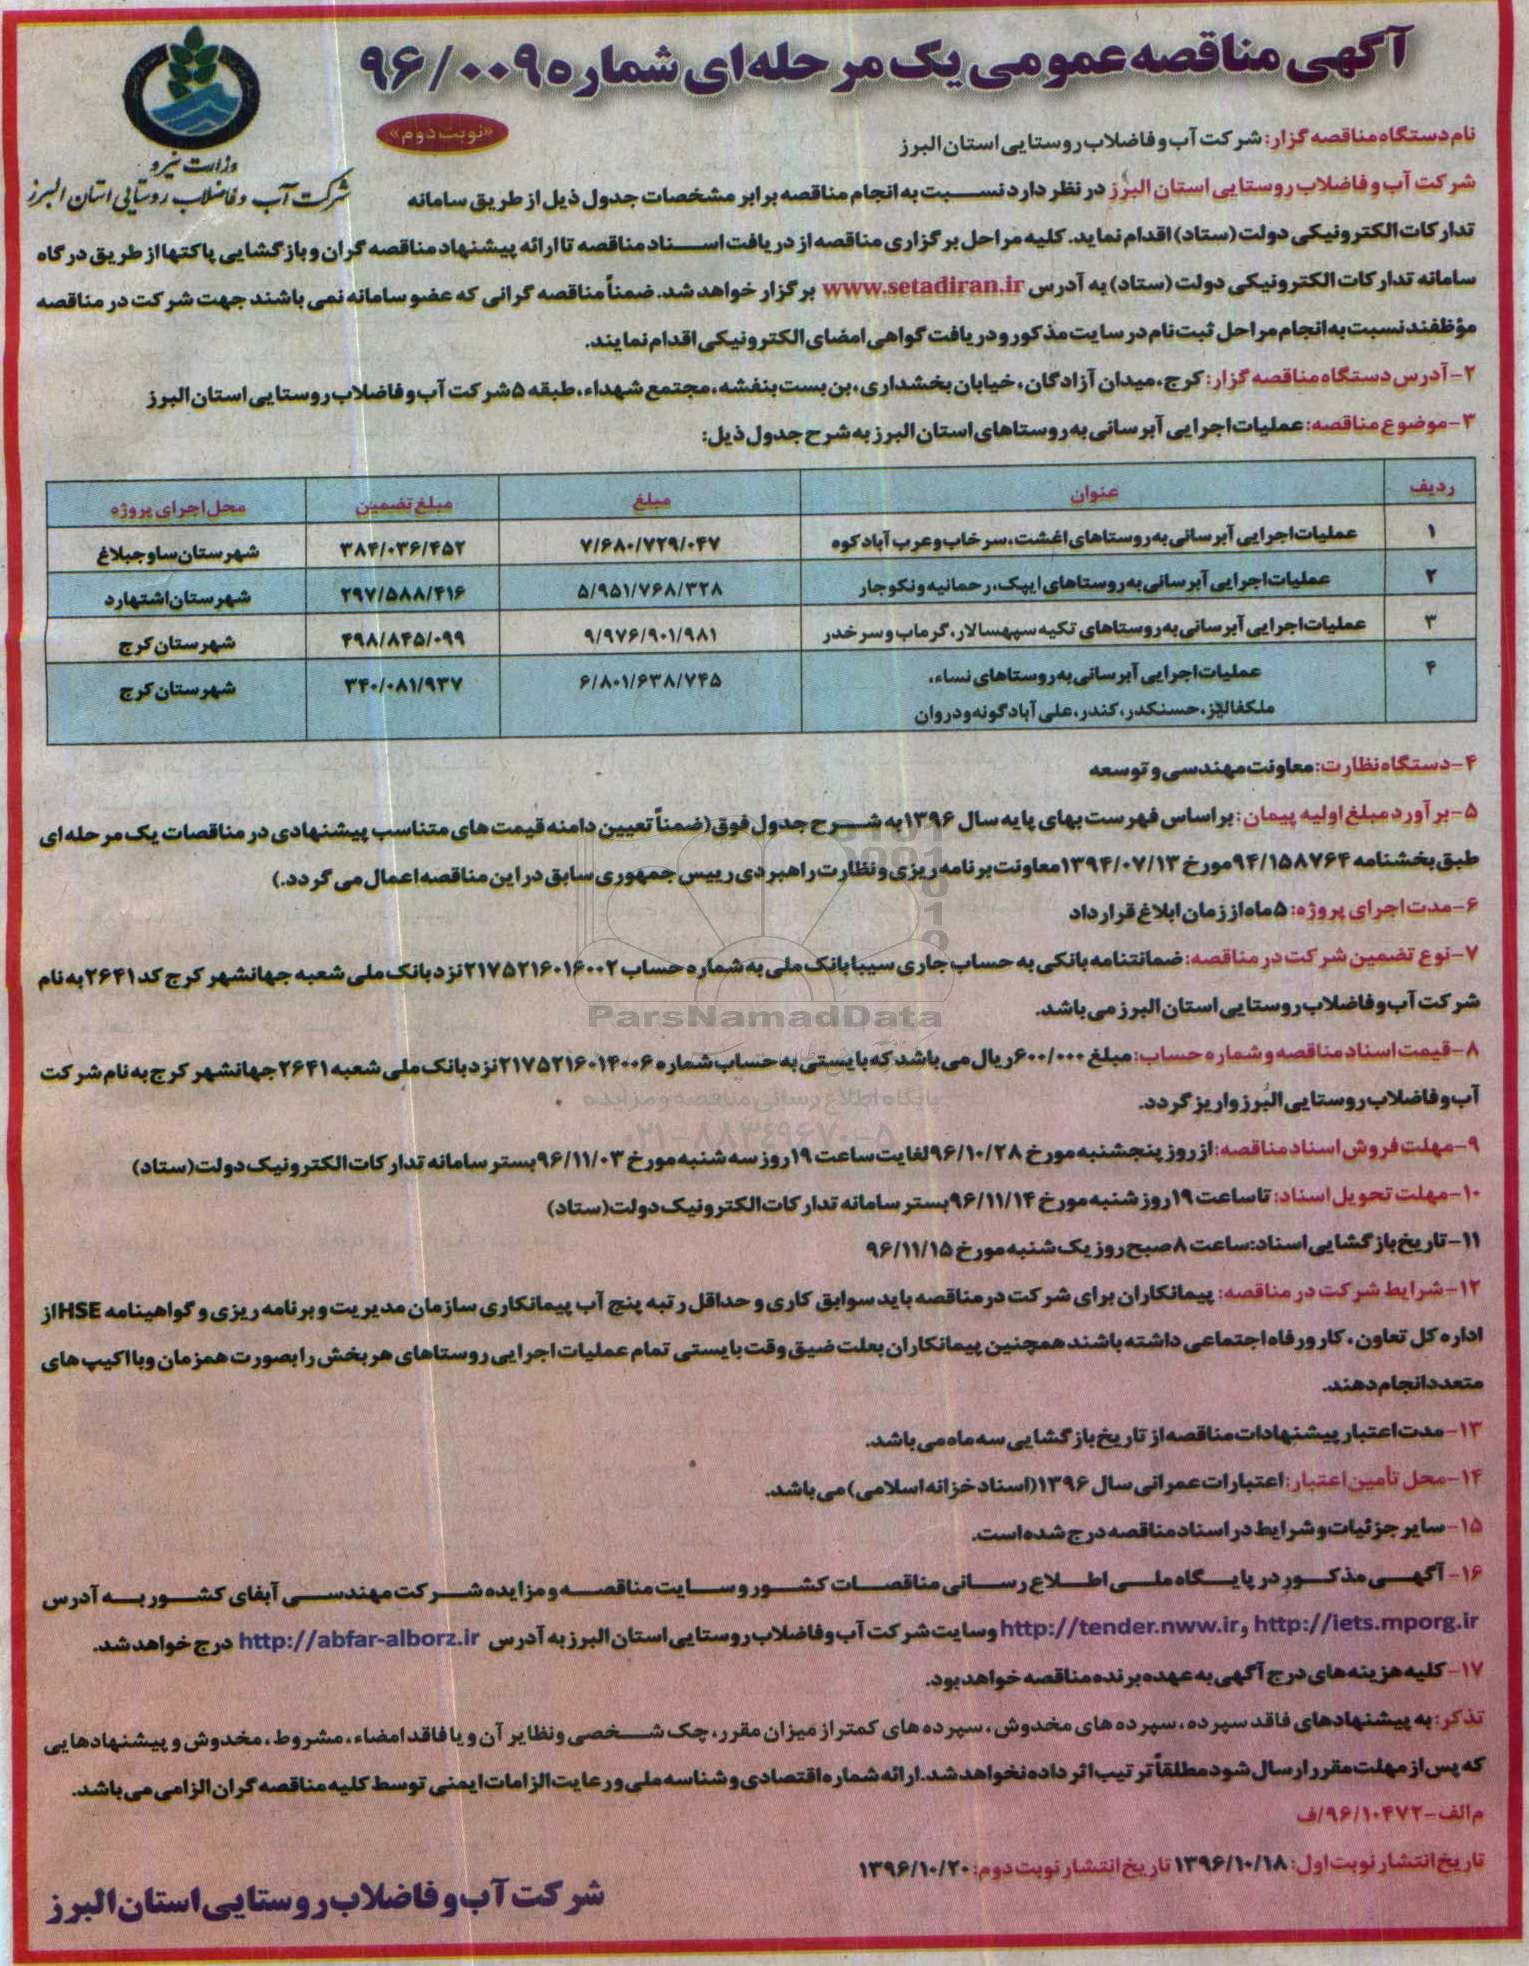 آگهی مناقصه عمومی یک مرحله‌ای شماره ۹۶/۰۰۹
«نوبت دوم»
وزارت نیرو
شرکت آب و فاضلاب روستایی استان البرز
نام دستگاه مناقصه گزار: شرکت آب و فاضلاب روستایی استان البرز
شرکت آب و فاضلاب روستایی استان البرز در نظر دارد نسبت به انجام مناقصه برابر مشخصات جدول ذیل از طریق سامانه
تدارکات الکترونیکی دولت (ستاد) اقدام نماید. کلیه مراحل برگزاری مناقصه از دریافت اسناد مناقصه تا ارائه پیشنهاد مناقصه گران و بازگشایی پاکتها از طریق درگاه
سامانه تدارکات الکترونیکی دولت (ستاد) به آدرس www.setadiran.ir برگزار خواهد شد. ضمناً مناقصه گرانی که عضو سامانه نمی باشند جهت شرکت در مناقصه
مؤظفند نسبت به انجام مراحل ثبت نام در سایت مذکور و دریافت گواهی امضای الکترونیکی اقدام نمایند.
۲- آدرس دستگاه مناقصه گزار: کرج، میدان آزادگان، خیابان بخشداری، بن بست بنفشه، مجتمع شهداء، طبقه ۵ شرکت آب و فاضلاب روستایی استان البرز
۳- موضوع مناقصه: عملیات اجرایی آبرسانی به روستاهای استان البرز به شرح جدول ذیل:
ردیف عنوان مبلغ مبلغ تضمین محل اجرای پروژه
۱ عملیات اجرایی آبرسانی به روستاهای اغشت، سرخاب و عرب آباد کوه ۷/۶۸۰/۷۲۹/۰۴۷ ۳۸۴/۰۳۶/۴۵۲ شهرستان ساوجبلاغ
۲ عملیات اجرایی آبرسانی به روستاهای ایپک، رحمانیه و نکوجار ۵/۹۵۱/۷۶۸/۳۲۸ ۲۹۷/۵۸۸/۴۱۶ شهرستان اشتهارد
۳ عملیات اجرایی آبرسانی به روستاهای تکیه سپهسالار، گرماب و سرخدر ۹/۹۷۶/۹۰۱/۹۸۱ ۴۹۸/۸۴۵/۰۹۹ شهرستان کرج
۴ عملیات اجرایی آبرسانی به روستاهای نساء، ۶/۸۰۱/۶۳۸/۷۴۵ ۳۴۰/۰۸۱/۹۳۷ شهرستان کرج
ملکفالیز، حسنکدر، کندر، علی آباد گونه و دروان
۴- دستگاه نظارت: معاونت مهندسی و توسعه
۵- برآورد مبلغ اولیه پیمان: براساس فهرست بهای پایه سال ۱۳۹۶ به شرح جدول فوق (ضمناً تعیین دامنه قیمت های متناسب پیشنهادی در مناقصات یک مرحله ای
طبق بخشنامه ۹۴/۱۵۸۷۶۴ مورخ ۱۳۹۴/۰۷/۱۳ معاونت برنامه ریزی و نظارت راهبردی رییس جمهوری سابق در این مناقصه اعمال می گردد.)
۶- مدت اجرای پروژه: ۵ ماه از زمان ابلاغ قرارداد
۷- نوع تضمین شرکت در مناقصه: ضمانتنامه بانکی به حساب جاری سیبا بانک ملی به شماره حساب ۲۱۷۵۲۱۶۰۱۶۰۰۲ نزد بانک ملی شعبه جهانشهر کرج کد ۲۶۴۱ به نام
شرکت آب و فاضلاب روستایی استان البرز می باشد.
ParsNamadData
۸- قیمت اسناد مناقصه و شماره حساب: مبلغ ۶۰۰/۰۰۰ ریال می باشد که بایستی به حساب شماره ۲۱۷۵۲۱۶۰۱۴۰۰۶ نزد بانک ملی شعبه ۲۶۴۱ جهانشهر کرج به نام شرکت
آب و فاضلاب روستایی البرز واریز گردد.
پایگاه اطلاع رسانی مناقصه و مزایده
۰۲۱-۸۸۳۴۹۶۷۰-۵
۹- مهلت فروش اسناد مناقصه: از روز پنجشنبه مورخ ۹۶/۱۰/۲۸ لغایت ساعت ۱۹ روز سه شنبه مورخ ۹۶/۱۱/۰۳ بستر سامانه تدارکات الکترونیک دولت (ستاد)
۱۰- مهلت تحویل اسناد: تا ساعت ۱۹ روز شنبه مورخ ۹۶/۱۱/۱۴ بستر سامانه تدارکات الکترونیک دولت (ستاد)
۱۱- تاریخ بازگشایی اسناد: ساعت ۸ صبح روز یک شنبه مورخ ۹۶/۱۱/۱۵
۱۲- شرایط شرکت در مناقصه: پیمانکاران برای شرکت در مناقصه باید سوابق کاری و حداقل رتبه پنج آب پیمانکاری سازمان مدیریت و برنامه ریزی و گواهینامه HSE از
اداره کل تعاون، کار و رفاه اجتماعی داشته باشند همچنین پیمانکاران بعلت ضیق وقت بایستی تمام عملیات اجرایی روستاهای هر بخش را بصورت همزمان و با اکیپ های
متعدد انجام دهند.
۱۳- مدت اعتبار پیشنهادات مناقصه از تاریخ بازگشایی سه ماه می باشد.
۱۴- محل تأمین اعتبار: اعتبارات عمرانی سال ۱۳۹۶ (اسناد خزانه اسلامی) می باشد.
۱۵- سایر جزئیات و شرایط در اسناد مناقصه درج شده است.
۱۶- آگهی مذکور در پایگاه ملی اطلاع رسانی مناقصات کشور و سایت مناقصه و مزایده شرکت مهندسی آبفای کشور به آدرس
http://iets.mporg.ir و http://tender.nww.ir و سایت شرکت آب و فاضلاب روستایی استان البرز به آدرس http://abfar-alborz.ir درج خواهد شد.
۱۷- کلیه هزینه های درج آگهی به عهده برنده مناقصه خواهد بود.
تذکر: به پیشنهادهای فاقد سپرده، سپرده های مخدوش، سپرده های کمتر از میزان مقرر، چک شخصی و نظایر آن و یا فاقد امضاء، مشروط، مخدوش و پیشنهادهایی
که پس از مهلت مقرر ارسال شود مطلقاً ترتیب اثر داده نخواهد شد. ارائه شماره اقتصادی و شناسه ملی و رعایت الزامات ایمنی توسط کلیه مناقصه گران الزامی می باشد.
م الف - ۹۶/۱۰۴۷۲/ف
تاریخ انتشار نوبت اول: ۱۳۹۶/۱۰/۱۸ تاریخ انتشار نوبت دوم: ۱۳۹۶/۱۰/۲۰
شرکت آب و فاضلاب روستایی استان البرز